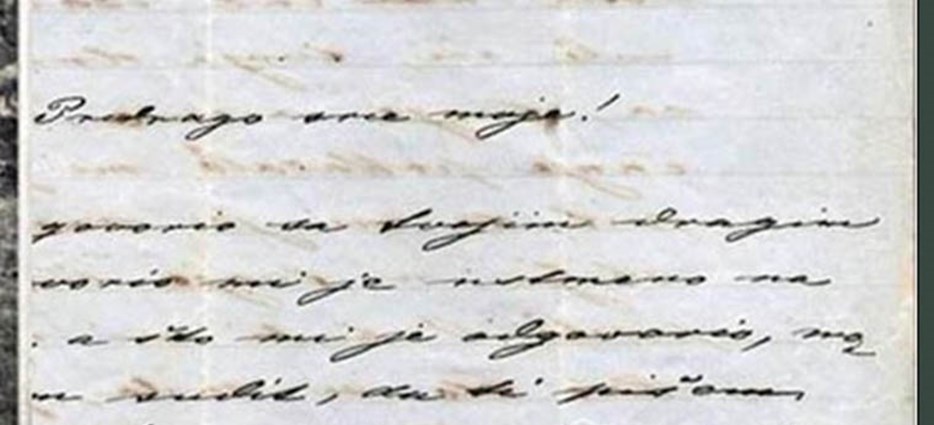 Predrago srce moje!
govorio sa tvojim dragim
vorio mi je ustmeno na
a što mi je odgovorio, mo
sudit, da ti pišem,